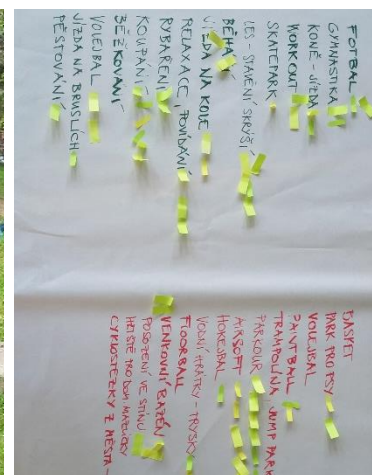 FOTBAL
GYMNASTIKA
KONĚ - JÍZDA
WORKOUT
SKATEPARK
LES - STAVĚNÍ SKRÝŠÍ
BĚHÁNÍ
JÍZDA NA KOLE
RELAXACE, POVÍDÁNÍ
RYBAŘENÍ
KOUPÁNÍ
BĚŽKOVÁNÍ
VOLEJBAL
JÍZDA NA BRUSLÍCH
PĚSTOVÁNÍ
BASKET
PARK PRO PSY
VOLEJBAL
PAINTBALL
TRAMPOLÍNA, JUMP PARK
PARKOUR
AIRSOFT
HOKEJBAL
VODNÍ HRÁTKY - TRYSKY
FLOORBALL
VENKOVNÍ BAZÉN
POSEZENÍ VE STÍNU
HŘIŠTĚ PRO DOM. MAZLÍČKY
CYKLOSTEZKY Z MĚSTA